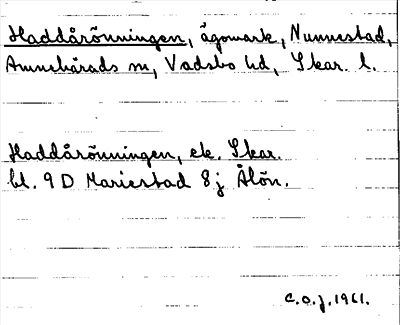 Haddårönningen, ägomark, Nunnestad,
Amnehärads sn, Vadsbo hd, Skar. l.
Haddårönningen, ek. Skar.
bl. 9D Mariestad 8j Ålön.
C.O.J. 1961.